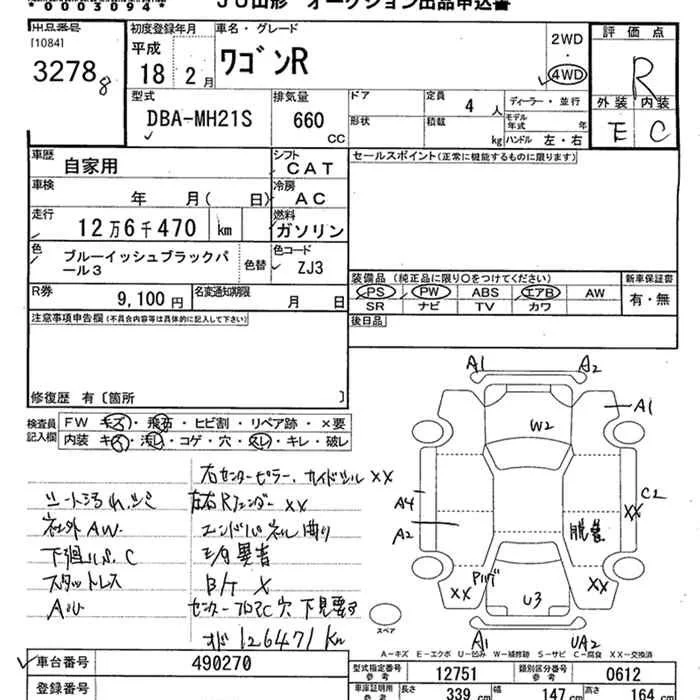 *0003094*
JU山形 オークション出品申込書
出品番号 初度登録年月 車名・グレード 2WD 評価点
[1084] 平成 ・
3278 8 18 2月 ワゴンR 4WD R
型式 排気量 ドア 定員 4人 ディーラー・並行 外装 内装
DBA-MH21S 660 CC 形状 積載 kg モデル年式 年 ハンドル 左・右 E C
車歴 自家用 シフト CAT セールスポイント(正常に機能するものに限ります)
車検 年 月( 日) 冷房 AC
走行 12万6千470 km 燃料 ガソリン
色 ブルーイッシュブラックパール3 色替 色コード ZJ3
装備品 (純正品に限り○をつけてください) 新車保証書
R券 9,100円 名変通知期限 月 日 PS PW ABS エアB AW 有・無
SR ナビ TV カワ
注意事項申告欄(不具合内容等は具体的に記入して下さい) 後日品
修復歴 有〔箇所 〕
検査員 FW キズ・飛石・ヒビ割・リペア跡・×要
記入欄 内装 キズ・汚れ・コゲ・穴・スレ・キレ・破レ
右センターピラー、ガイドレール XX
シート汚れ、シミ 左右Rフェンダー XX
社外AW エンドパネル曲り
下廻り S、C 異音
スタットレス B/T X
センターフロアC穴 下見要す
メーター 126471 km
A1 A2
A1
W2
A4 C2
A2 XX
XX XX
U3
A1 UA2
スペア
A-キズ E-エクボ U-凹み W-補修跡 S-サビ C-腐食 XX-交換済
車台番号 490270 型式指定番号 参考 12751 類別区分番号 参考 0612
登録番号 車庫証明用 参考 長さ 339 cm 幅 147 cm 高さ 164 cm